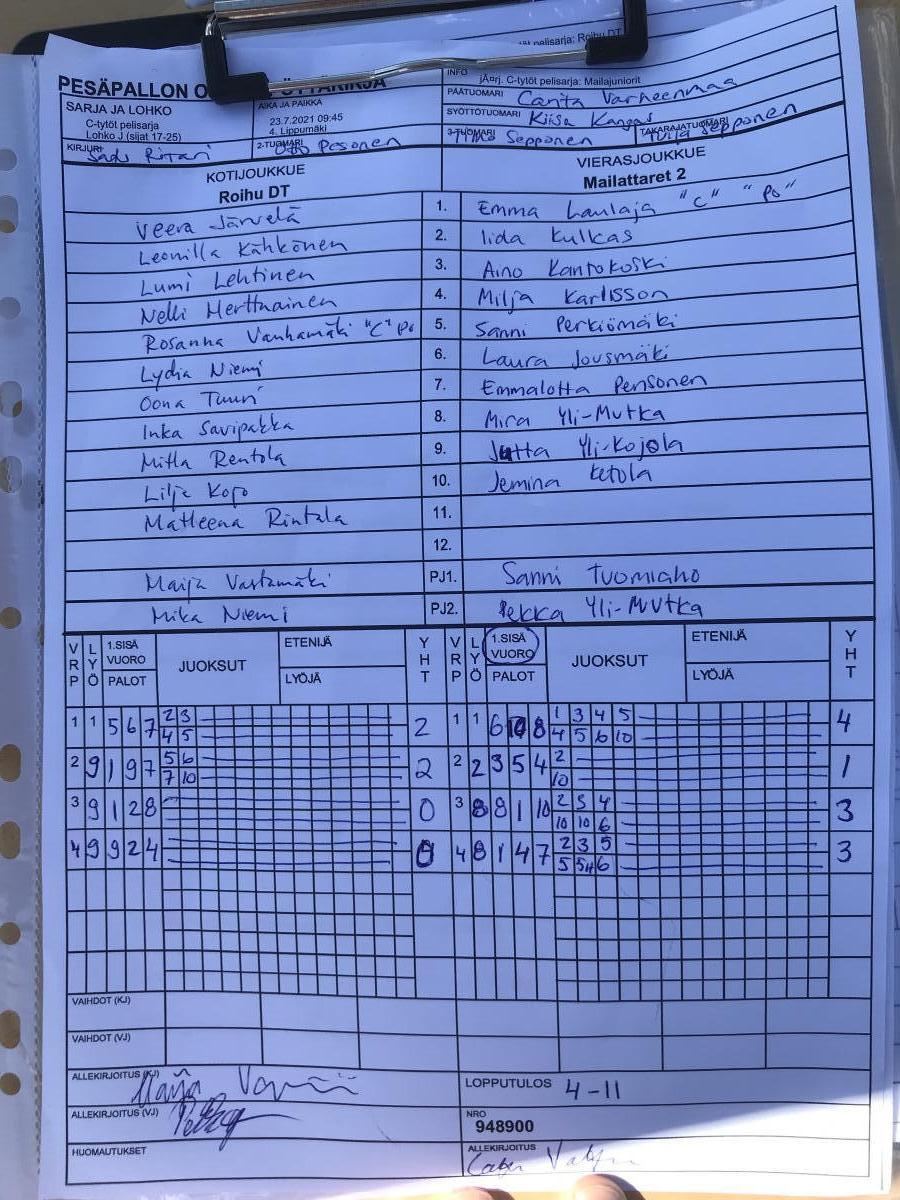 pelisarja: Roihu DT
PESÄPALLON O
SARJA JA LOHKO
C-tytöt pelisarja
Lohko J (sijat 17-25)
AIKA JA PAIKKA
23.7.2021 09:45
4. Lippumäki
INFO
jÄarj. C-tytöt pelisarja: Mailajuniorit
PÄÄTUOMARI Carita Varheenmaa
SYÖTTÖTUOMARI Kiisa Kangas
KIRJURI Satu Ritari
2-TUOMARI Otto Pesonen
3-TUOMARI Timo Sepponen
TAKARAJATUOMARI Tuija Sepponen
KOTIJOUKKUE
Roihu DT
VIERASJOUKKUE
Mailattaret 2
Veera Järvelä 1. Emma Laulaja "C" "Po"
Leonilla Kähkönen 2. Iida Kulkas
Lumi Lehtinen 3. Aino Kantokoski
Nelli Merttuainen 4. Milja Karlsson
Rosanna Vanhamäki "C" Po 5. Sanni Perkiömäki
Lydia Niemi 6. Laura Jousmäki
Oona Tuuri 7. Emmalotta Pensonen
Inka Savipakka 8. Mira Yli-Mutka
Mitla Rentola 9. Jutta Yli-Kojola
Lilja Kopo 10. Jemina Ketola
Matleena Rintala 11.
12.
Maija Vastamäki PJ1. Sanni Tuomiaho
Mika Niemi PJ2. Pekka Yli-Mutka
VRP LYÖ 1.SISÄ VUORO PALOT JUOKSUT ETENIJÄ LYÖJÄ YHT VRP LYÖ 1.SISÄ VUORO PALOT JUOKSUT ETENIJÄ LYÖJÄ YHT
1 1 5 6 7 2 3 2 1 1 6 10 8 1 3 4 5 4
4 5 4 5 6 10
2 9 1 9 7 5 6 2 2 2 3 5 4 2 1
7 10 10
3 9 1 2 8 0 3 8 8 1 10 2 3 4 3
10 10 6
4 9 9 2 4 0 4 8 1 4 7 2 3 5 3
5 5 6
VAIHDOT (KJ)
VAIHDOT (VJ)
ALLEKIRJOITUS (KJ)
LOPPUTULOS 4-11
ALLEKIRJOITUS (VJ)
NRO
948900
HUOMAUTUKSET
ALLEKIRJOITUS